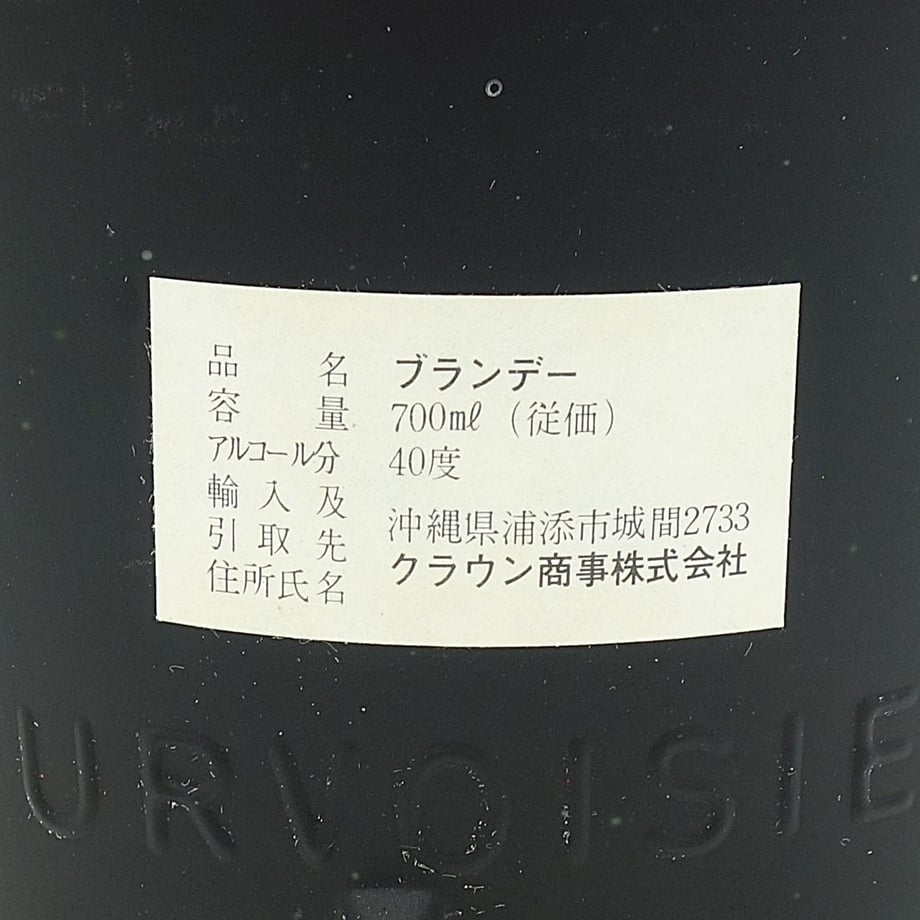 品名 ブランデー
容量 700mℓ (従価)
アルコール分 40度
輸入及
引取先
住所氏名
沖縄県浦添市城間2733
クラウン商事株式会社
URVOISIE